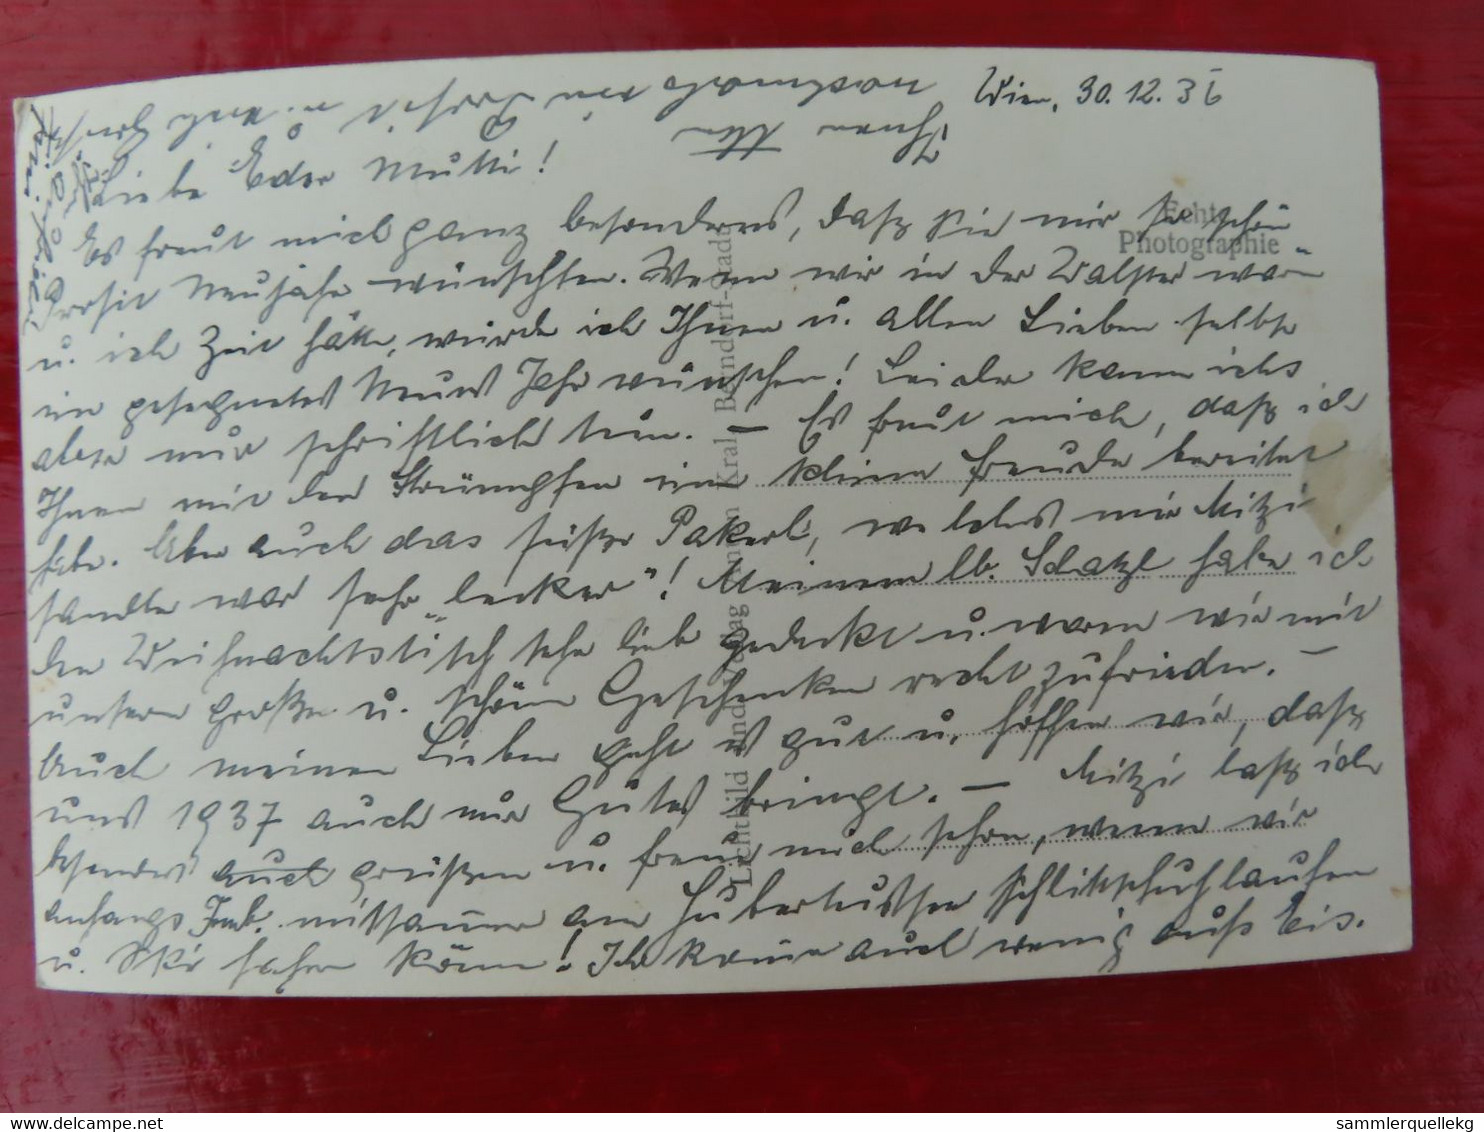 Wien, 30.12.36
Liebe Eder Mutti!
Es freut mich ganz besonders, daß Sie mir so schön
Prosit Neujahr wünschten. Wenn wir in der Walster wären
u. ich Zeit hätte, würde ich Ihnen u. allen Lieben selbst
ein gesegnetes Neues Jahr wünschen! Leider kann ichs
aber nur schriftlich tun. – Es freut mich, daß ich
Ihnen mit den Strümpfen eine kleine Freude bereitet
habe. Aber auch das süße Pakerl, welches mir Mitzi
sandte war sehr „lecker"! Meinem lb. Schatzl habe ich
den Weihnachtstisch sehr lieb gedeckt u. waren wir mit
unseren großen u. schönen Geschenken recht zufrieden. –
Auch meinen Lieben geht es gut u. hoffen wir, daß
uns 1937 auch nur Gutes bringt. – Mitzi laß ich
besonders auch grüßen u. freue mich schon, wenn wir
anfangs mitsammen am Hubertussee Schlittschuhlaufen
u. Ski fahren können! Ich kann auch wenig aufs Eis.
Ihnen
Echte
Photographie
Lichtbild und Verlag Kral, Berndorf-Stadt
www.delcampe.net
sammlerquellekg